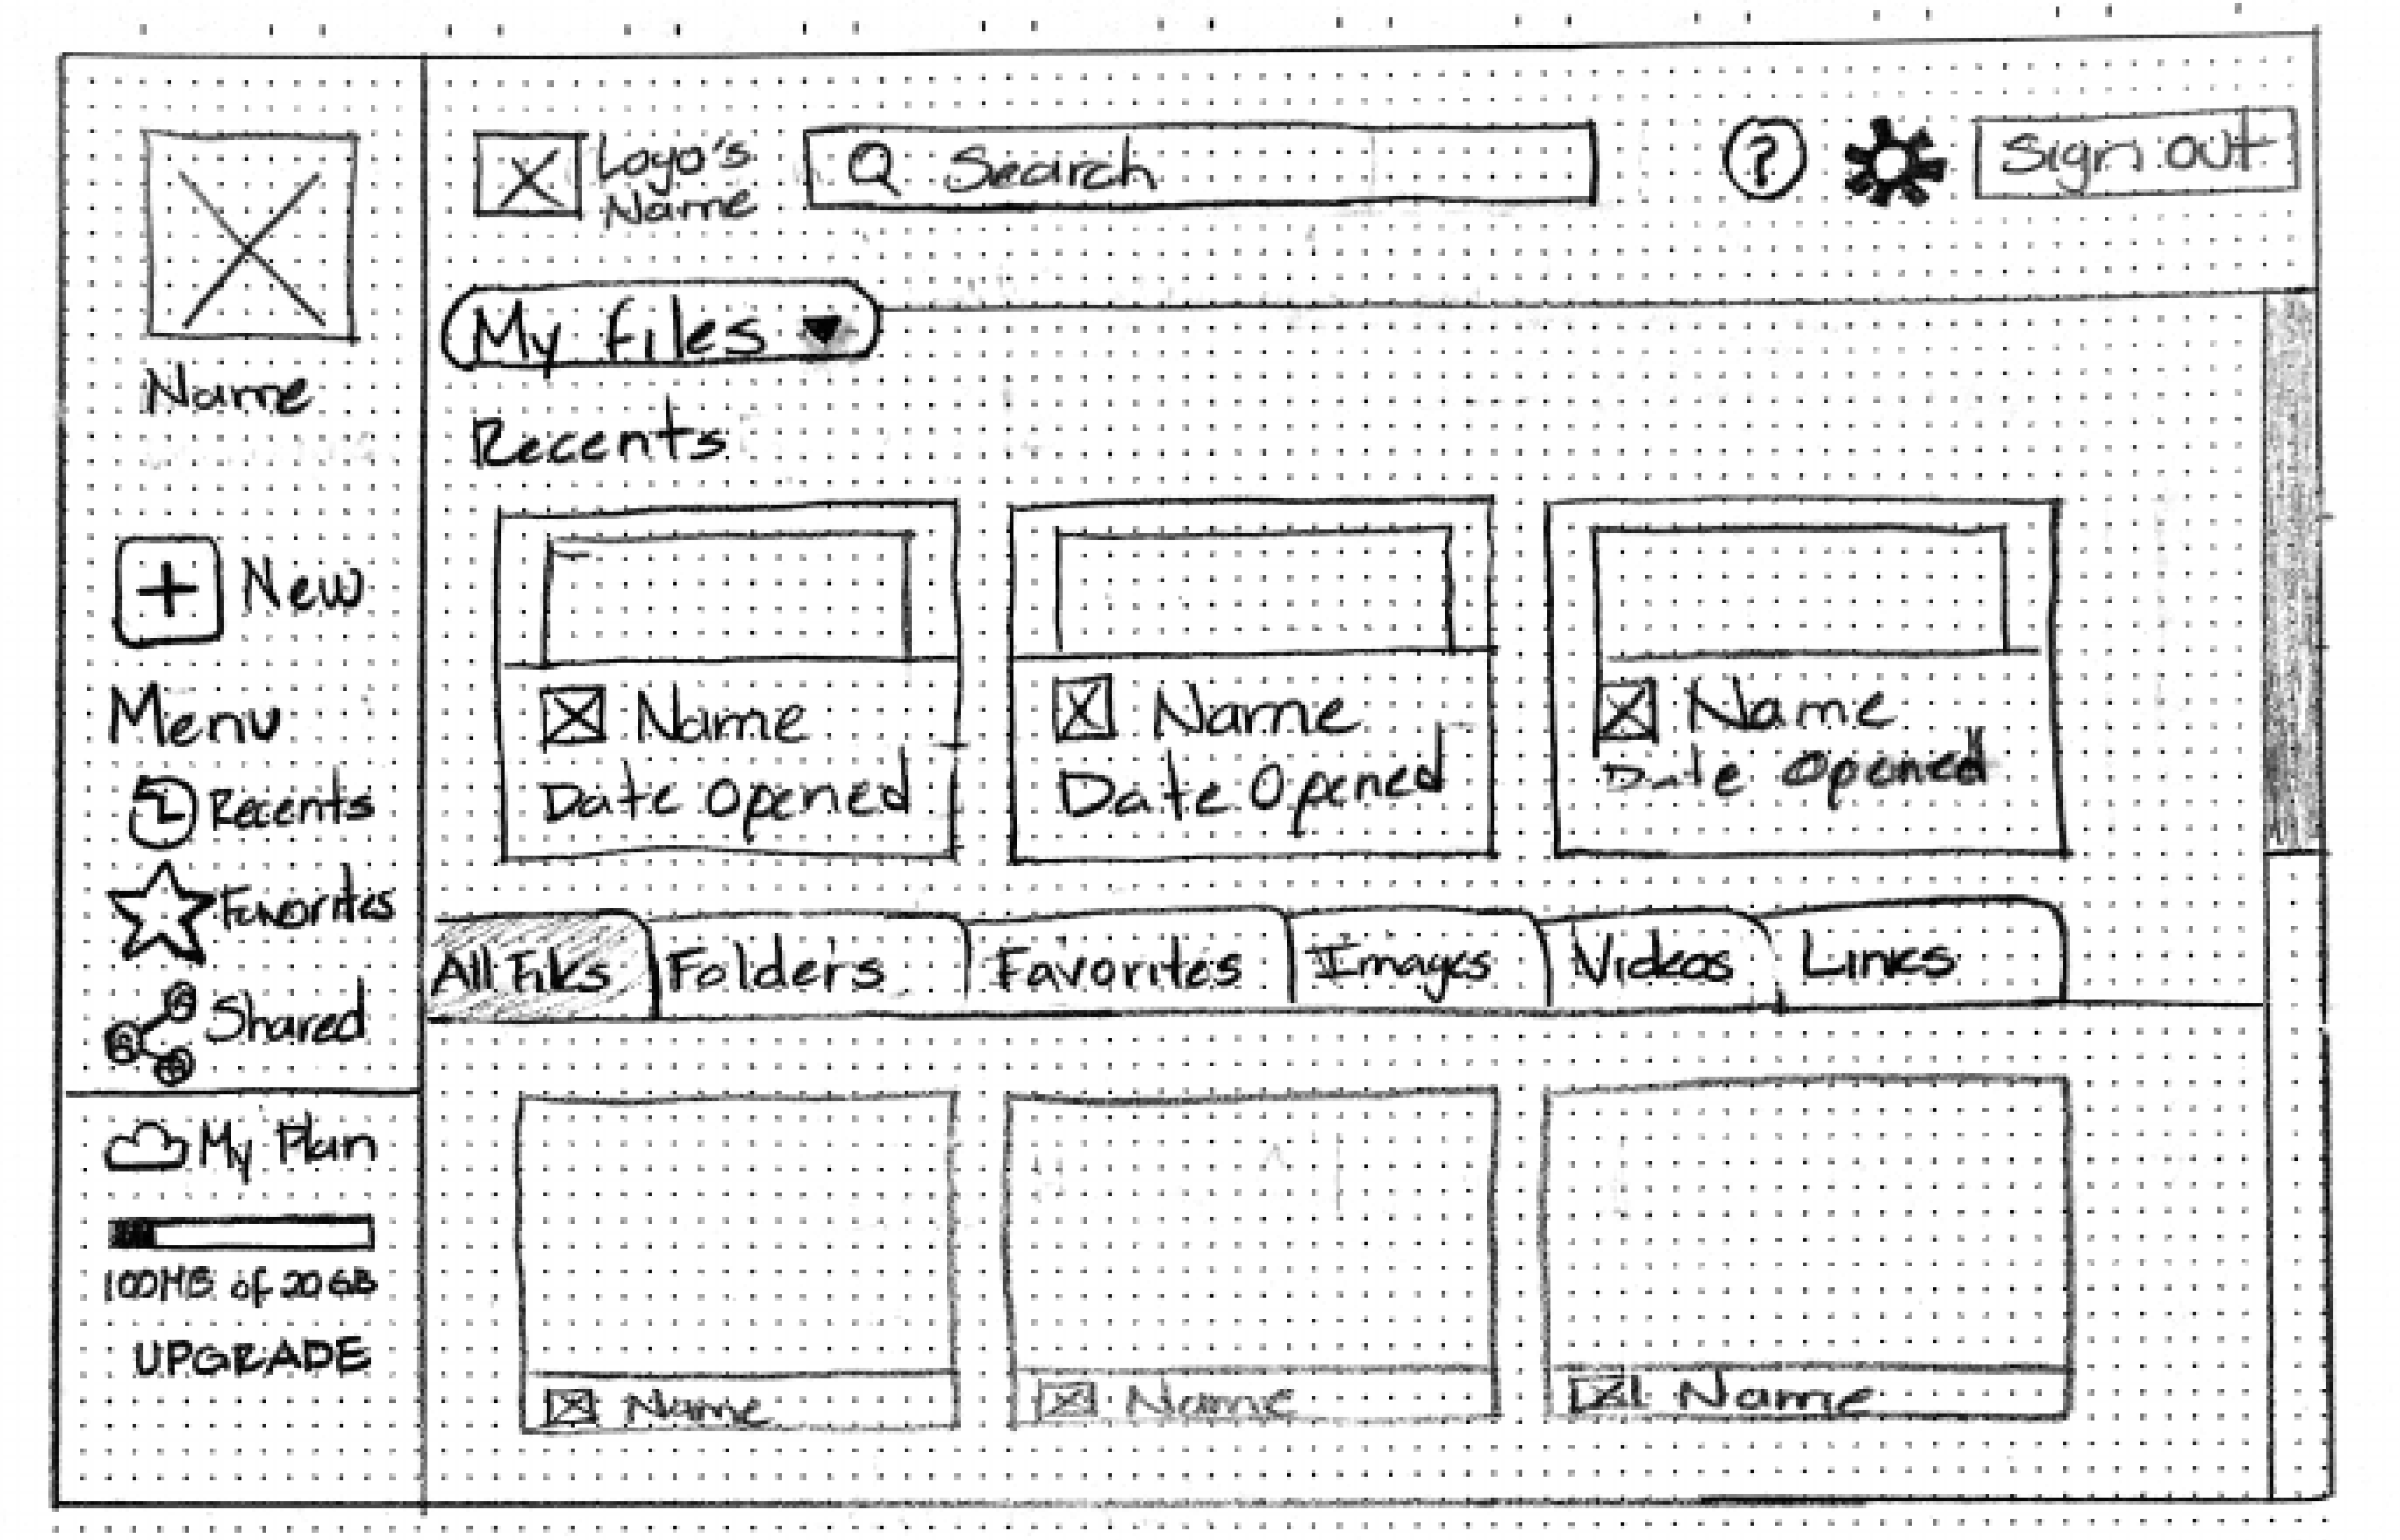 Name
New
Menu
Recents
Favorites
Shared
My Plan
100MB of 20GB
UPGRADE
Logo's
Name
Search
?
Sign out
My files
Recents
Name
Date Opened
Name
Date Opened
Name
Date Opened
All Files
Folders
Favorites
Images
Videos
Links
Name
Name
Name